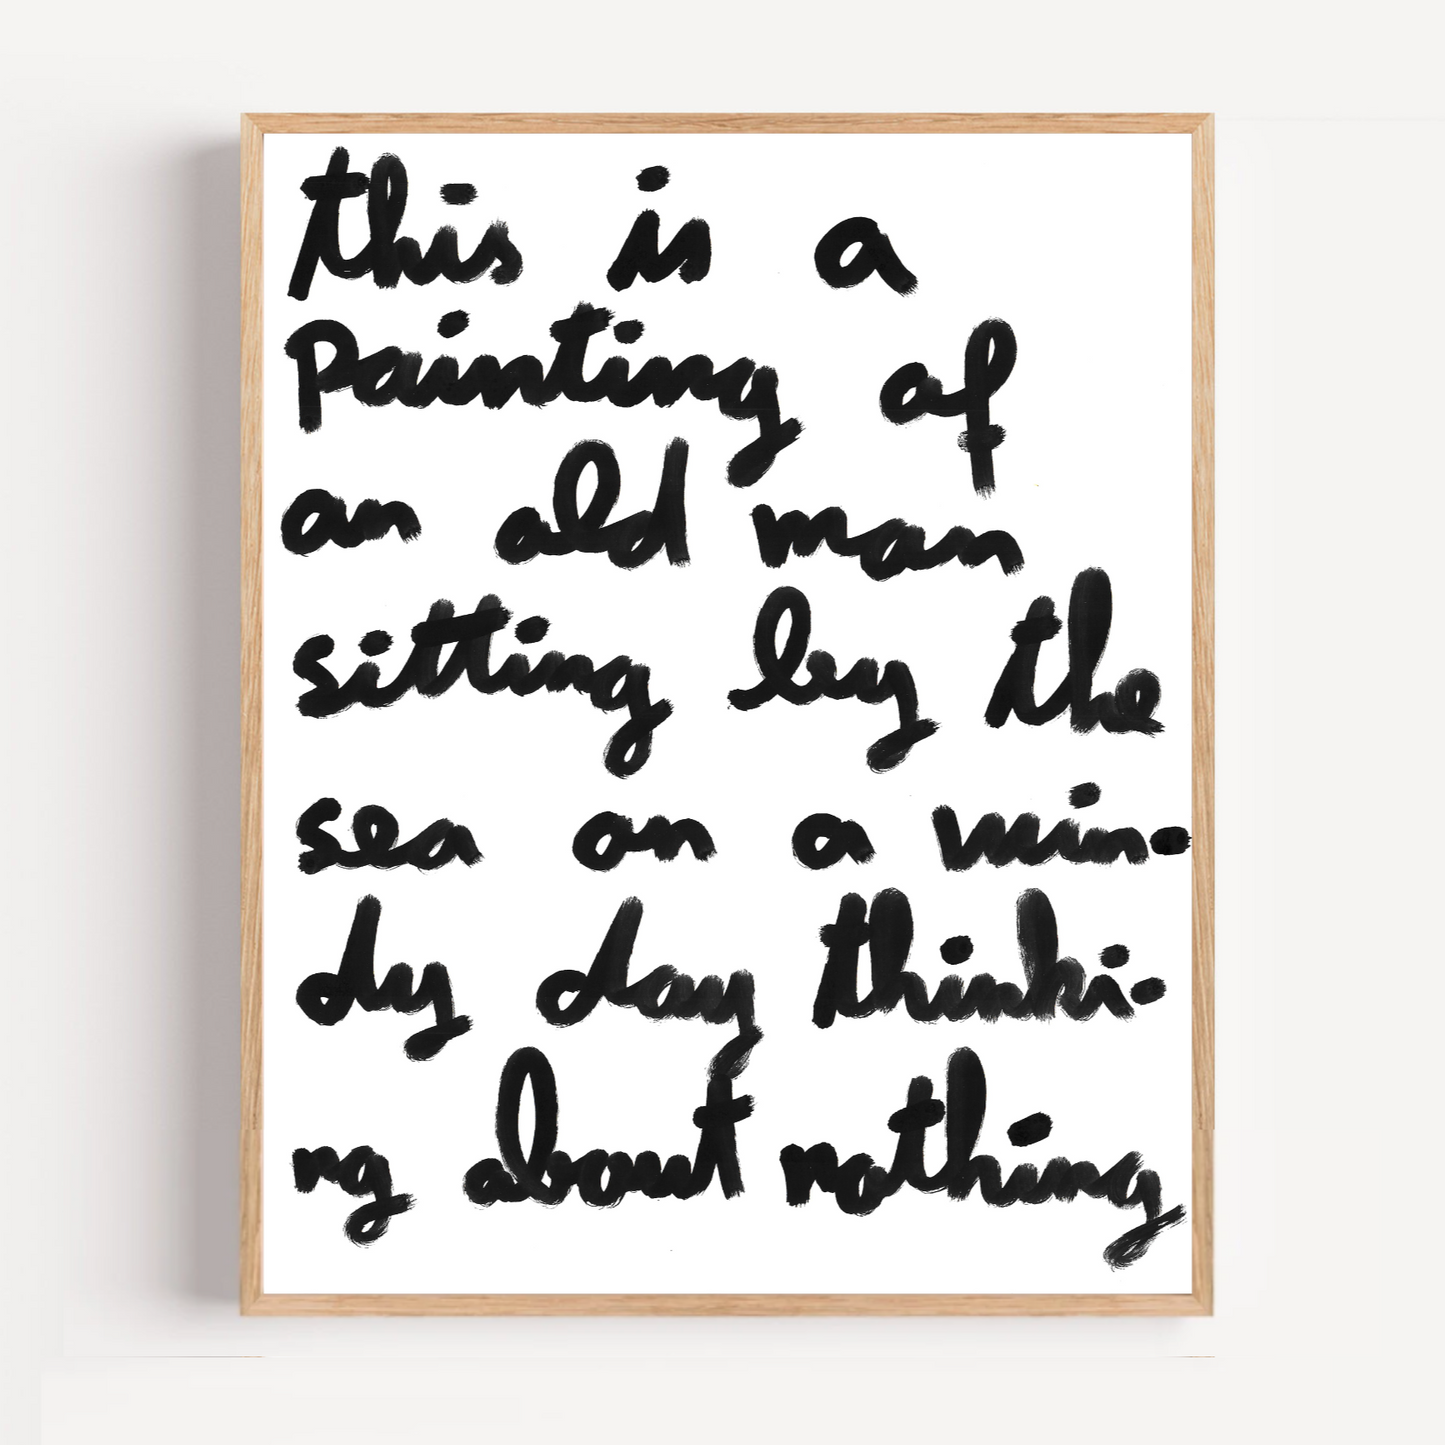 this is a
Painting of
an old man
sitting by the
sea on a win-
dy day thinki-
ng about nothing